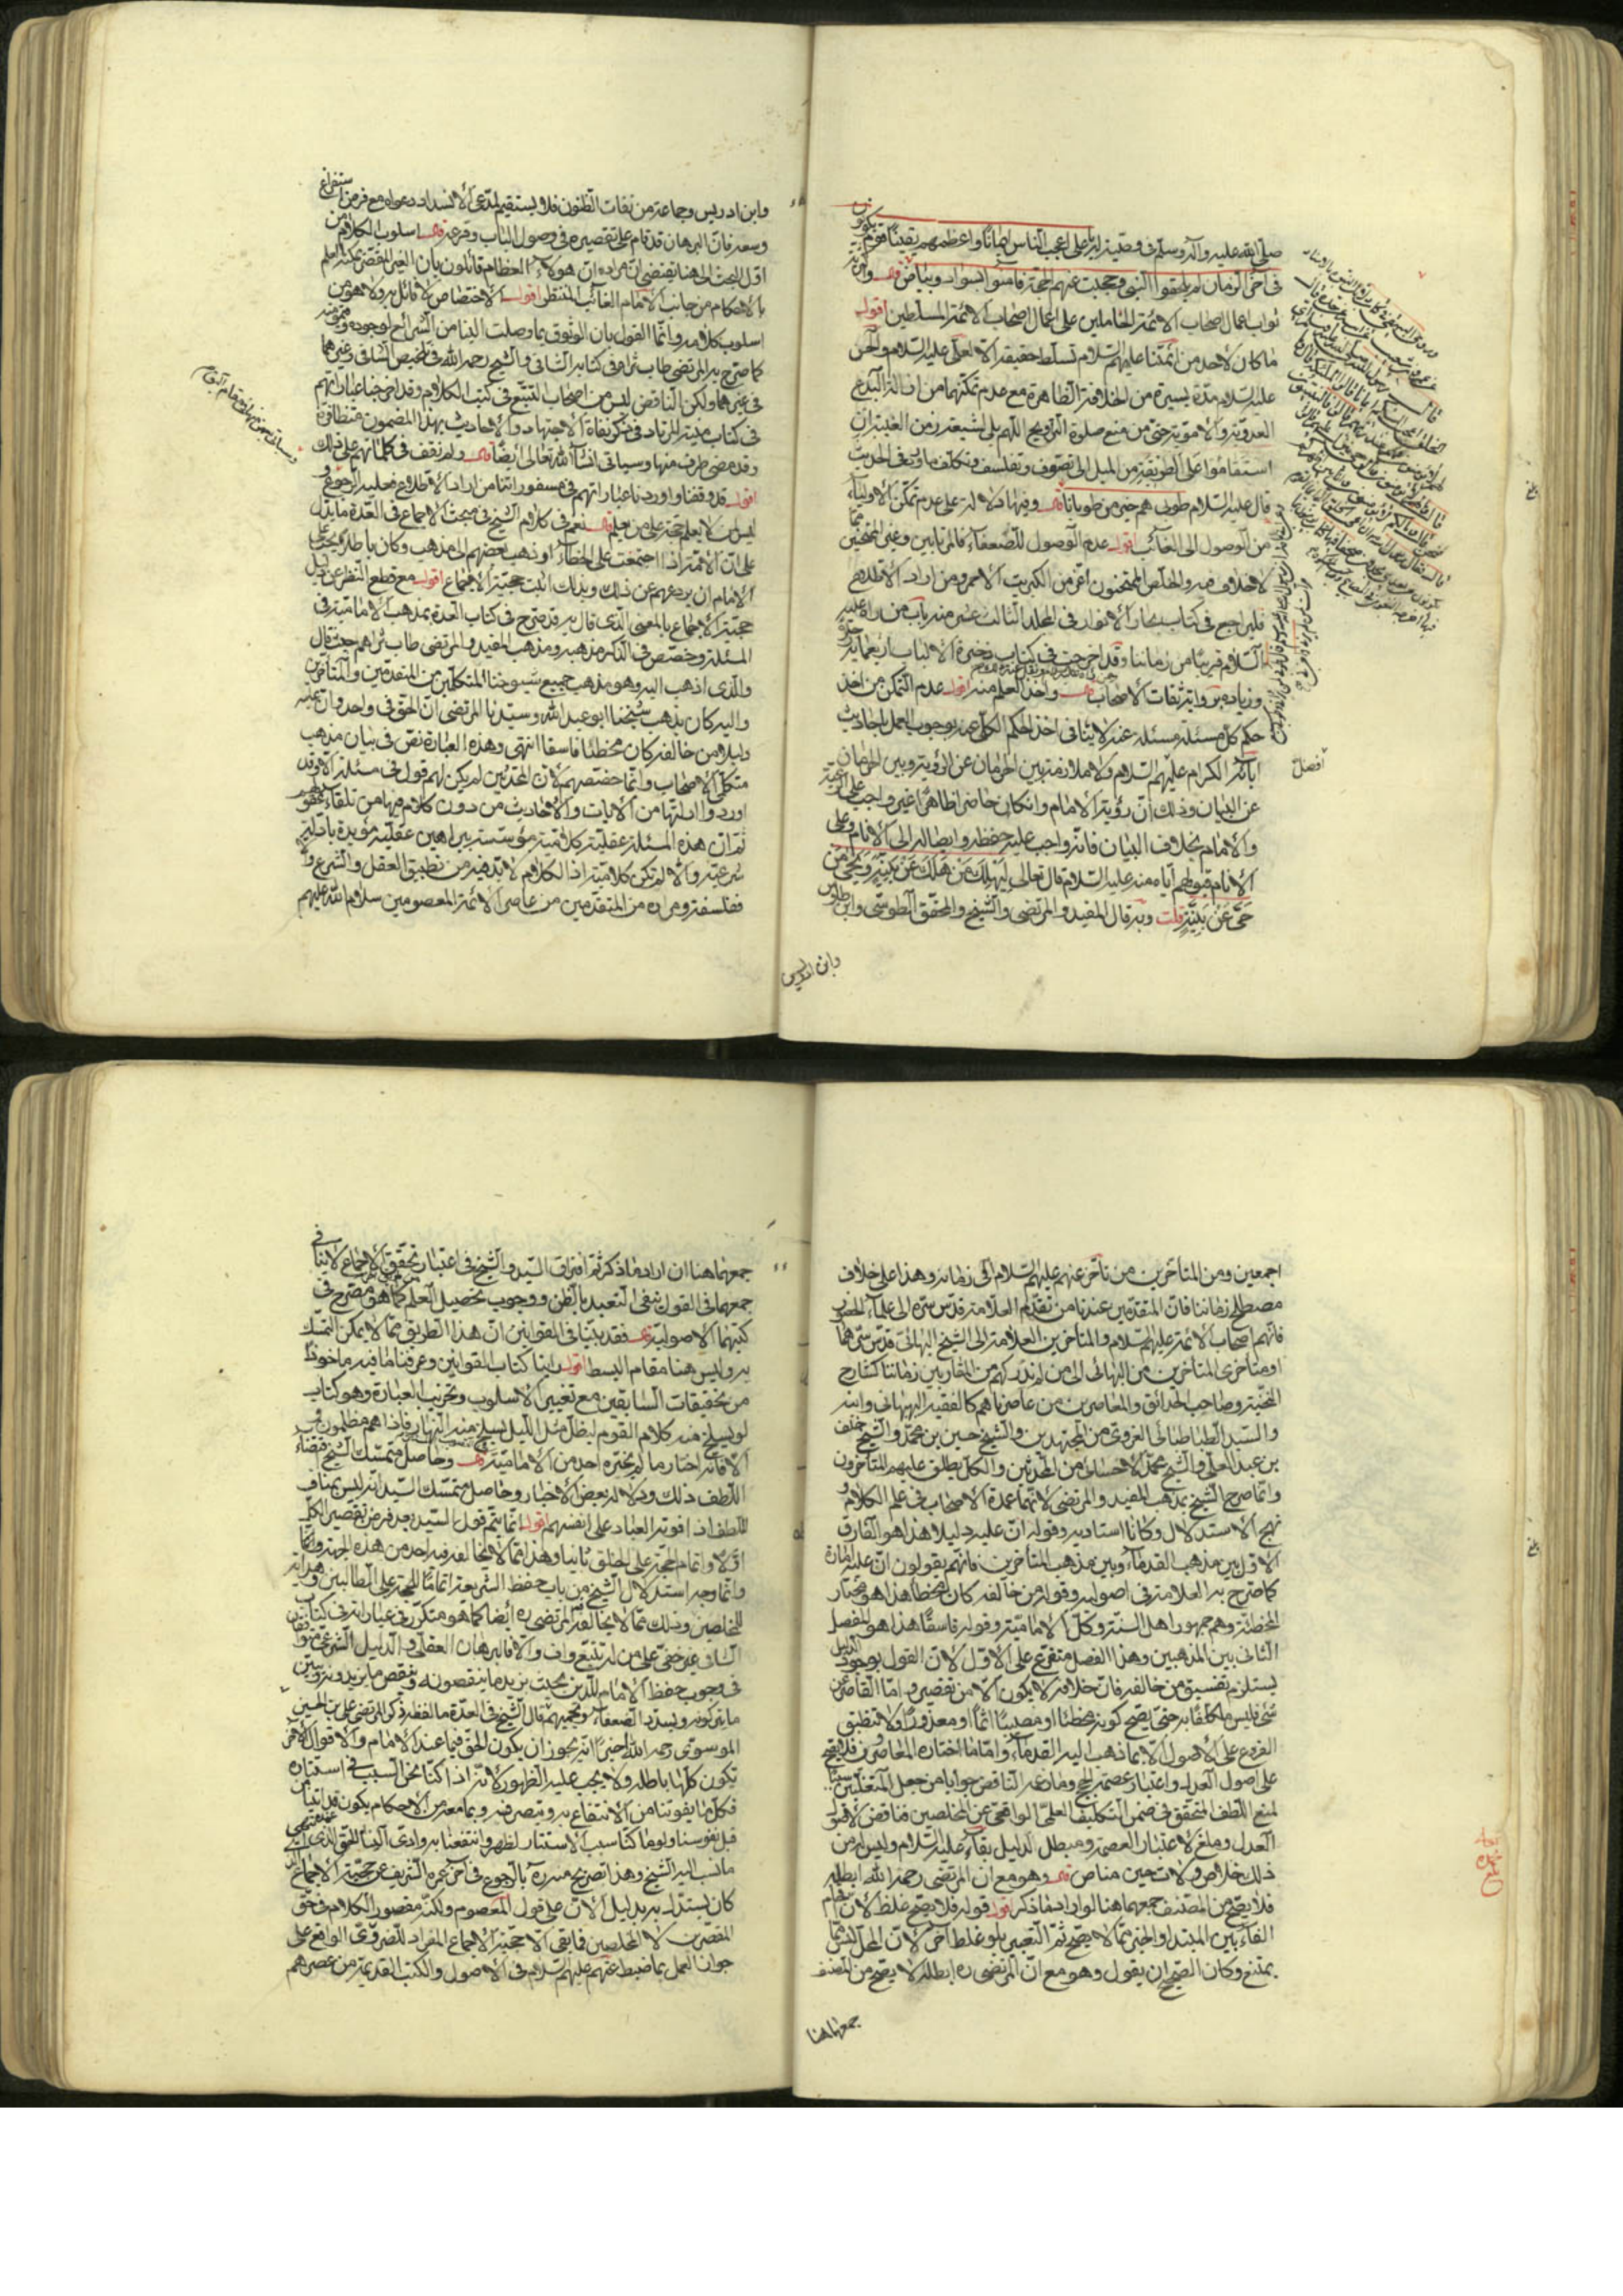 صلى الله عليه وآله وسلم في وصيته لعلي اعجب الناس ايمانا واعظمهم يقينا قوم يكونون
في آخر الزمان لم يلحقوا النبي وحجبت عنهم الحجة فآمنوا بسواد وبياض
ثواب اعمال اصحاب الائمة الخاملين على اعمال اصحاب الائمة المسلطين اقول
ما كان لاحد من ائمتنا عليهم السلام تسلط حقيقة الا لعلي عليه السلام والحسن
عليه السلام مدة يسيرة من الخلافة الظاهرة مع عدم تمكنهما من ازالة البدع
العدوية والاموية حتى من منع صلوة التراويح اللهم بلى لشيعة زمن الغيبة ان
استقاموا على الطريقة من الميل الى تصوف وتفلسف وتكلف ما وفي الحديث
قال عليه السلام طوبى هم خير من طوبانا وفيها دلالة على عدم تمكن الاولياء
من الوصول الى الغائب اقول عدم الوصول للضعفاء فالمرتابين وغير الممتحنين مما
لا خلاف فيه والخلص الممتحنون اعز من الكبريت الاحمر ومن اراد الاطلاع
فليراجع في كتاب بحار الانوار في المجلد الثالث عشر منه باب من راه عليه
السلام قريبا من زماننا وقد اخرجت في كتاب ذخيرة الالباب اربعماية
وزياده برواية ثقات الاصحاب واخذ العلم منه اقول عدم التمكن من اخذ
حكم كل مسئلة مسئلة عنه لا ينافي اخذ الحكم الكلي عنه بوجوب العمل باحاديث
آبائه الكرام عليهم السلام ولا ملازمة بين الحرمان عن الرؤية وبين الحرمان
عن البيان وذلك ان رؤية الامام وان كان حاضرا ظاهرا غير واجب على
والامام بخلاف البيان فانه واجب عليه حفظه وايصاله الى الانام وعلى
الانام قبولهم اياه منه عليه السلام قال تعالى ليهلك من هلك عن بينة ويحيى من
حي عن بينة قلت وبه قال المفيد والمرتضى والشيخ والمحقق الطوسي وابن طاوس
وابن ادريس
افضل
وابن ادريس وجماعة من نفات الظنون فلا يستقيم لمدعي الانسداد دعواه مع فرض استفراغ
وسعه فان البرهان قد قام على تقصيره في وصول الباب وقرعه اسلوب الكلام من
اول البحث الى هنا تقتضي ان مراده ان هولاء العظام قائلون بان الغير المقصر يمكنه العلم
بالاحكام من جانب الامام الغائب المنتظر اقول الاختصاص لا قائل به ولا هو من
اسلوب كلامه وانما القول بان الوثوق بما وصلت الينا من الشرائع لوجوده
كما صرح به المرتضى طاب ثراه في كتابه الشافي والشيخ رحمه الله في تلخيص الشافي وغيرهما
في غيرهما ولكن الناقض ليس من اصحاب التتبع في كتب الكلام وقد اوضحنا عباراتهم
في كتاب منية المرتاد في ذكر نفاة الاجتهاد والاحاديث بهذا المضمون متظافرة
وقد مضى طرف منها وسياتي انشاء الله تعالى ايضا ولم نقف في كلماتهم على ذلك
اقول قد وقفنا واوردنا عباراتهم في مسفوراتنا من اراد الاطلاع فعليه بالرجوع و
ليس من لا يعلم حجة على من يعلم نعم في كلام الشيخ في مبحث الاجماع في العدة ما يدل
على ان الامة اذا اجتمعت على الخطاء او ذهب بعضهم الى مذهب وكان باطلا يجب على
الامام ان يردعهم عن ذلك وبذلك اثبت حجية الاجماع اقول مع قطع النظر عن دليل
حجية الاجماع بالمعنى الذي قال به قد صرح في كتاب العدة بمذهب الامامية في
المسئلة وخصص في الذكر مذهبه ومذهب المفيد والمرتضى طاب ثراهم حيث قال
والذي اذهب اليه وهو مذهب جميع شيوخنا المتكلمين من المتقدمين والمتأخرين
واليه كان يذهب شيخنا ابو عبد الله وسيدنا المرتضى ان الحق في واحد وان عليه
دليلا من خالفه كان مخطئا فاسقا انتهى وهذه العبارة نص في بيان مذهب
متكلمي الاصحاب وانما خصهم لان المحدثين لم يكن لهم قول في مسئلة الا وقد
اوردوا ادلتها من الايات والاحاديث من دون كلام فيها من تلقاء
ثم ان هذه المسئلة عقلية كلامية مؤسسة ببراهين عقلية مؤيدة بادلة
شرعية والا لم تكن كلامية اذ الكلام لا بد فيه من تطبيق العقل والشرع والا
ففلسفة ومراده من المتقدمين من عاصر الائمة المعصومين سلام الله عليهم
اجمعين ومن المتأخرين من تأخر عنهم عليهم السلام الى زمانه وهذا على خلاف
مصطلح زماننا فان المتقدمين عندنا من تقدم العلامة قدس سره الى علماء الحضور
فانهم اصحاب الائمة عليهم السلام والمتأخرين العلامة الى الشيخ البهائي قدس سرهما
او متأخري المتأخرين من البهائي الى من لم ندركهم من المقاربين زماننا كشارح
النخبة وصاحب الحدائق والمعاصرين من عاصرناهم كالفقيه البهبهاني وابنه
والسيد الطباطبائي الغروي من المجتهدين والشيخ حسين بن محمد والشيخ خلف
بن عبد العلي والشيخ محمد الاحسائي من المحدثين والكل يطلق عليهم المتأخرون
وانما صرح الشيخ بمذهب المفيد والمرتضى لانهما عمدة الاصحاب في علم الكلام و
نهج الاستدلال وكانا استاديه وقوله ان عليه دليلا هذا هو الفارق
الاول بين مذهب القدماء وبين مذهب المتأخرين فانهم يقولون ان عليه امارة
كما صرح به العلامة في اصوله وقوله من خالفه كان مخطئا هذا هو مختار
المخطئة وهم جمهور اهل السنة وكل الامامية وقوله فاسقا هذا هو الفصل
الثاني بين المذهبين وهذا الفصل متفرع على الاول لان القول بوجود الدليل
يستلزم تفسيق من خالفه فان خلافه لا يكون الا من تقصير واما القاصر عن
شئ فليس مكلفا به حتى يصح كونه مخطئا او مصيبا اثما او معذورا ولا تنطبق
الفروع على الاصول الا بما ذهب اليه القدماء واما ما اختاره المعاصرون فلا يصح
على اصول العدل واعتبار عصمة الحجج وما دعى الناقض جوابا من جعل المتغلبين سببا
لمنع اللطف المتحقق في ضمن التكليف العلمي الواقعي عن المخلصين مناقض لاصول
العدل وملغ لاعتبار العصمة ومبطل لدليل بقاء عليه السلام وليس له من
ذلك خلاص ولات حين مناص وهو مع ان المرتضى رحمه الله ابطله
فلا يصح من المصنف جمعهما هنا لو اراد ما ذكر اقول قوله فلا يصح غلط لان اقحام
الفاء بين المبتدا والخبر مما لا يصح ثم التعبير بلو غلط آخر لان المحل ليس مما
يمتنع وكان الصحيح ان يقول وهو مع ان المرتضى ره ابطله لا يصح من المصنف
جمعهما هنا
جمعهما هنا ان اراد ما ذكر ثم افتراق السيد والشيخ في اعتبار تحقق الاجماع لا ينافي
جمعهما في القول بنفي التعبد بالظن ووجوب تحصيل العلم كما هو مصرح في
كتبهما الاصولية فقد بينا في القوانين ان هذا الطريق مما لا يمكن التمسك
به وليس هنا مقام البسط اقول راينا كتاب القوانين وعرفنا ما فيه ماخوذ
من تحقيقات السابقين مع تغيير الاسلوب وتخريب العبارة وهو كتاب
لو يسلخ منه كلام القوم ليظل مثل الليل يسلخ منه النهار فاذا هم مظلمون
الا فانه اختار ما لم يختره احد من الامامية وحاصل متمسك الشيخ اقتضاء
اللطف ذلك ودلالة بعض الاخبار وحاصل متمسك السيد انه ليس بمناف
للطف اذا فوته العباد على انفسهم اقول انما يتم قول السيد بعد فرض تقصير الكل
اولا واتمام الحجة على الخلق ثانيا وهذا مما لا يخالفه فيه احد من هذه الجهة
وانما وجه استدلال الشيخ من باب حفظ الشريعة اتماما للحجة على الطالبين وهداية
للمخلصين وذلك مما لا يخالفه المرتضى ره ايضا كما هو متكرر في عباراته في كتاب
الشافي غير خفي على من له تتبع واف والا فالبرهان العقلي والدليل الشرعي متوافقان
في وجوب حفظ الامام للدين بحيث يزيد ما ينقصونه وينقص ما يزيدونه ويبين
ما يتركونه ويسدد الضعفاء ويحميهم قال الشيخ في العدة ما لفظه ذكر المرتضى علي بن الحسين
الموسوي رحمه الله اخيرا انه يجوز ان يكون الحق فيما عند الامام والاقوال الاخر
تكون كلها باطلة ولا يجب عليه الظهور لانه اذا كنا نحن السبب في استتاره
فكل ما يفوتنا من الانتفاع به وبتصرفه وبما معه من الاحكام يكون قد اتينا من
قبل نفوسنا ولو ازلنا سبب الاستتار لظهر وانتفعنا به وادى الينا الحق الذي عنده انتهى
ما نسب اليه الشيخ وهذا تصريح منه ره بالرجوع في آخر عمره الشريف عن حجية الاجماع الذي
كان يستدل به بدليل الا ان على قول المعصوم ولكنه مقصور الكلام في حق
المقصرين لا المخلصين فما بقي الا حجية الاجماع المفيد للضروري الواقع على
جواز العمل بما ضبط عنهم عليهم السلام في الاصول والكتب القديمة من عصرهم